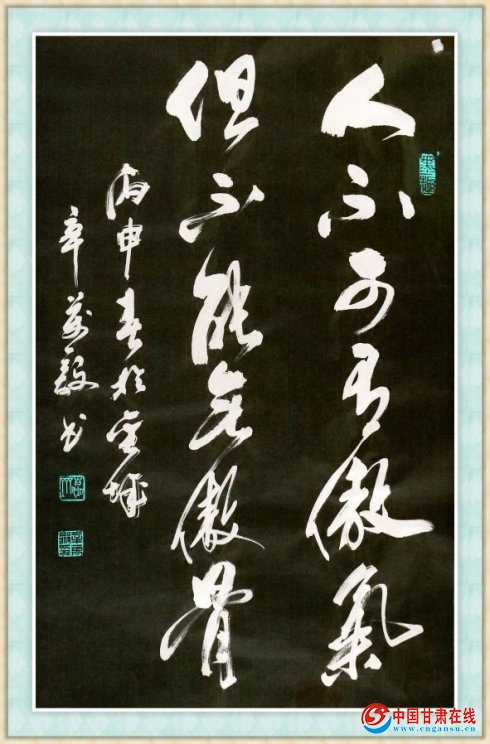 人不可有傲氣
但不能無傲骨
丙申春於金城
辛萬毅书
中国甘肃在线
www.cngansu.cn